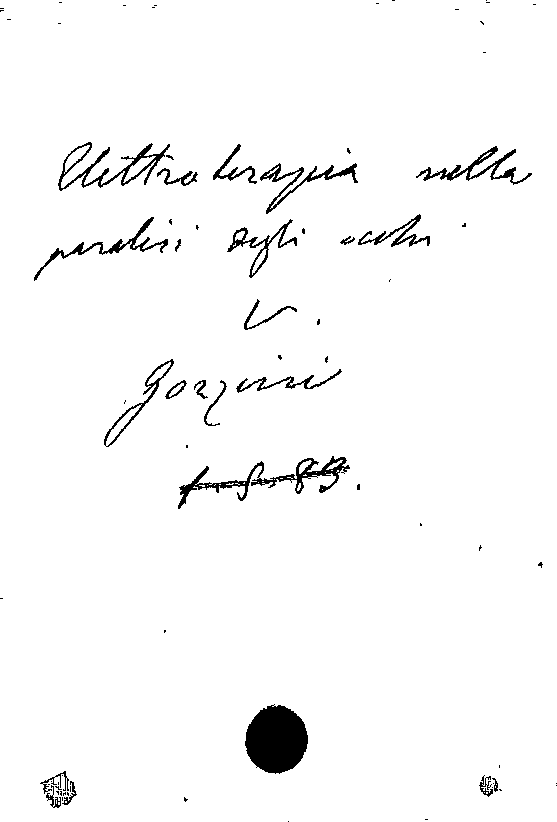 Elettroterapia nella
paralisi degli occhi
V.
Gozzini